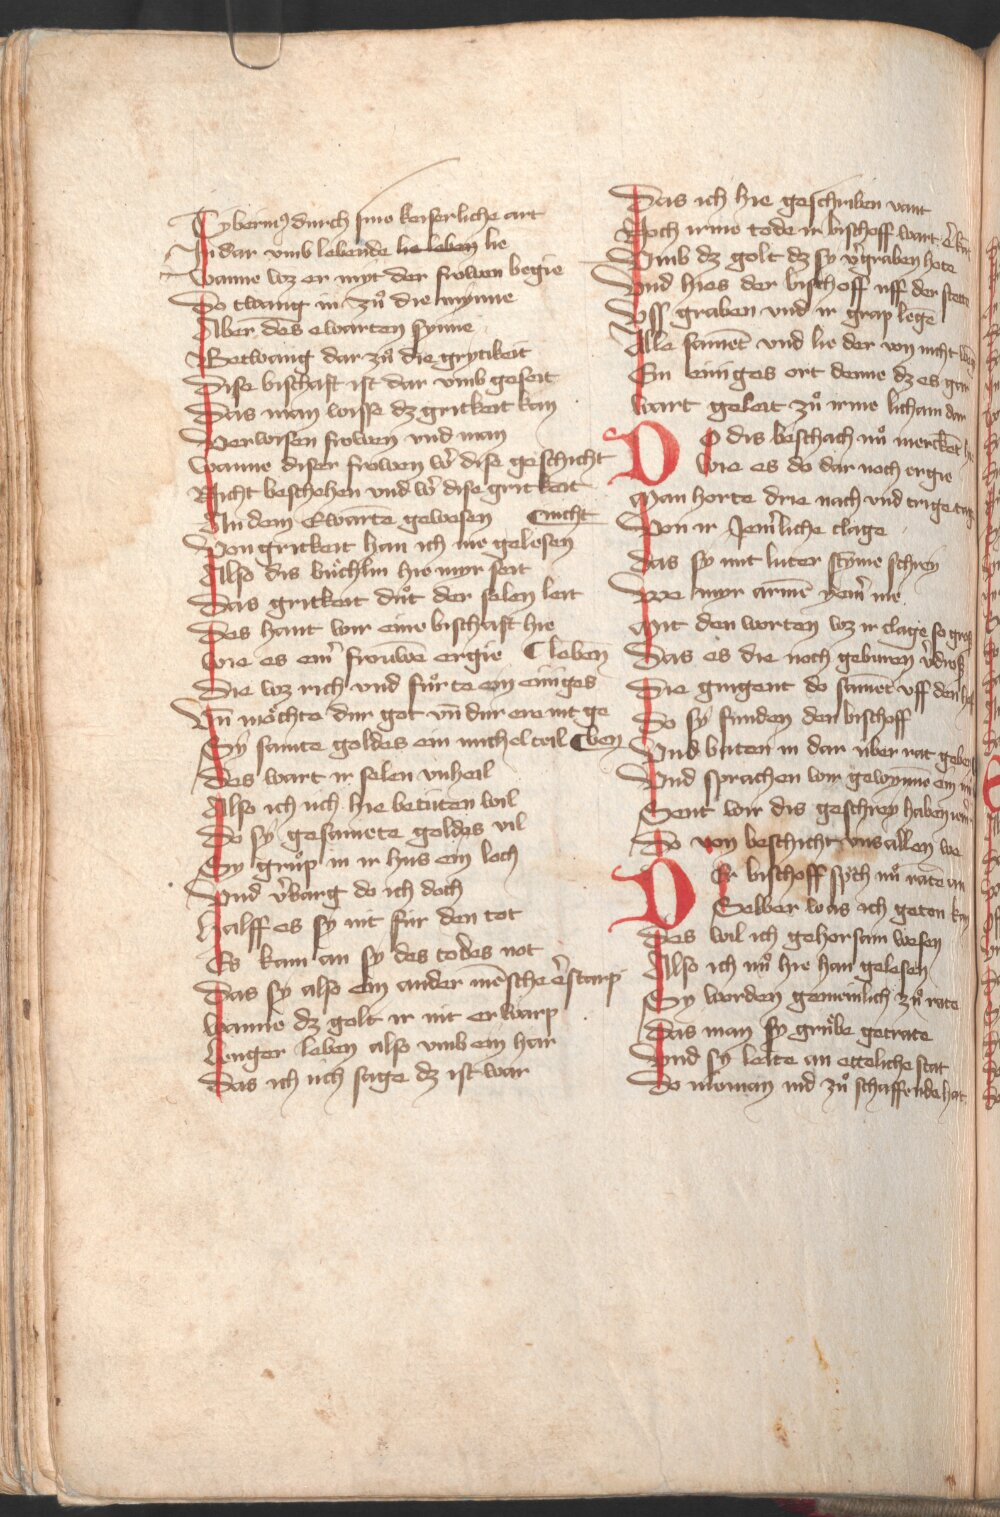 Tyberius durch sine keiserliche art
In dar umb lebende lie leben lie
Wanne wz er myt der frowen begie
So twang in zuͦ die mynne
Aber des ewarten synne
Betwang dar zuͦ die grytikeit
Dise bischaft ist dar umb geseit
Das man wisse dz gritkeit kan
Verwisen frowen vnd man
Wanne diser frowen wer̄ dise geschicht
Nicht beschehen vnd wer̄ dise gritkeit
An dem Ewarte gewesen nicht
Von gritkeit han ich me gelesen
Also dis buͤchlin hie myr seit
Das gritkeit duͦt der selen leit
Des hant wir eine bischaft hie
Wie es eine͛ frouwē ergie leben
Die wz rich vnd fuͦrte ein einiges
Vn̄ moͤchte dur got vn̄ dur ere nit ge
Sy samte goldes ein michel teil ben
Des wart ir selen vnheil
Also ich uch hie betuten wil
Do sy gesamete goldes vil
Sy gruͦp in ir hus ein loch
Vnd v͛barg do ich doch
Halff es sy nit für den tot
Es kam an sy des todes not
Das sy also ein ander mēsche e͛starp
Wanne dz golt ir nit erwarp
Lenger leben also vmb ein har
Das ich uch sage dz ist war
Das ich hie geschriben vant
Noch irme tode ir bischoff wart
Vmb dz golt dz sy v͛graben hete
Vnd hies der bischoff uff der stette
Vss graben vnd ir grap lege
Alle samēt vnd lie der von nicht
Ein einiges ort denne dz es gar
Wart geleit zuͦ irme licham dar
Do dis beschach nuͦ merckēt
Wie es do dar noch ergie
Man horte drie nach vnd trige tage
Von ir Jem͛liche clage
Das sy mit luter styme schrey
We myr armē yem͛ me
Mit den worten wz ir clage so gros
Das es die noch geburen v͛dros
Die gingent do samēt vff den
Do sy funden den bischoff
Vnd baten in dar über rat geben
Vnd sprachen wir gewynne ein
Sent wir dis geschrey haben
Do von beschicht vns allen we
Der bischoff sp͛ch nuͦ ratē an
Selber was ich geton kan
Des wil ich gehorsam wesen
Also ich nuͦ hie han gelesen
Sy worden gemeinlich zuͦ rate
Das man sy gruͤbe getrate
Vnd sy leite an etteliche stat
Do nieman nid zuͦ schaffende hat